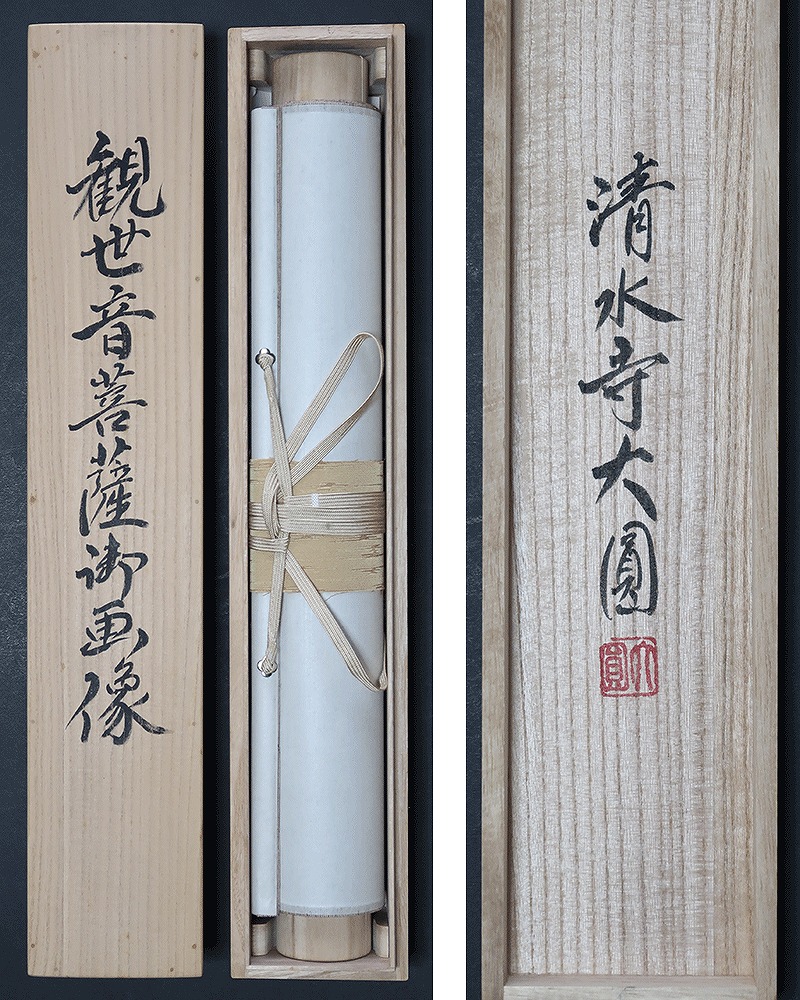 観世音菩薩御画像
清水寺大圓
大圓